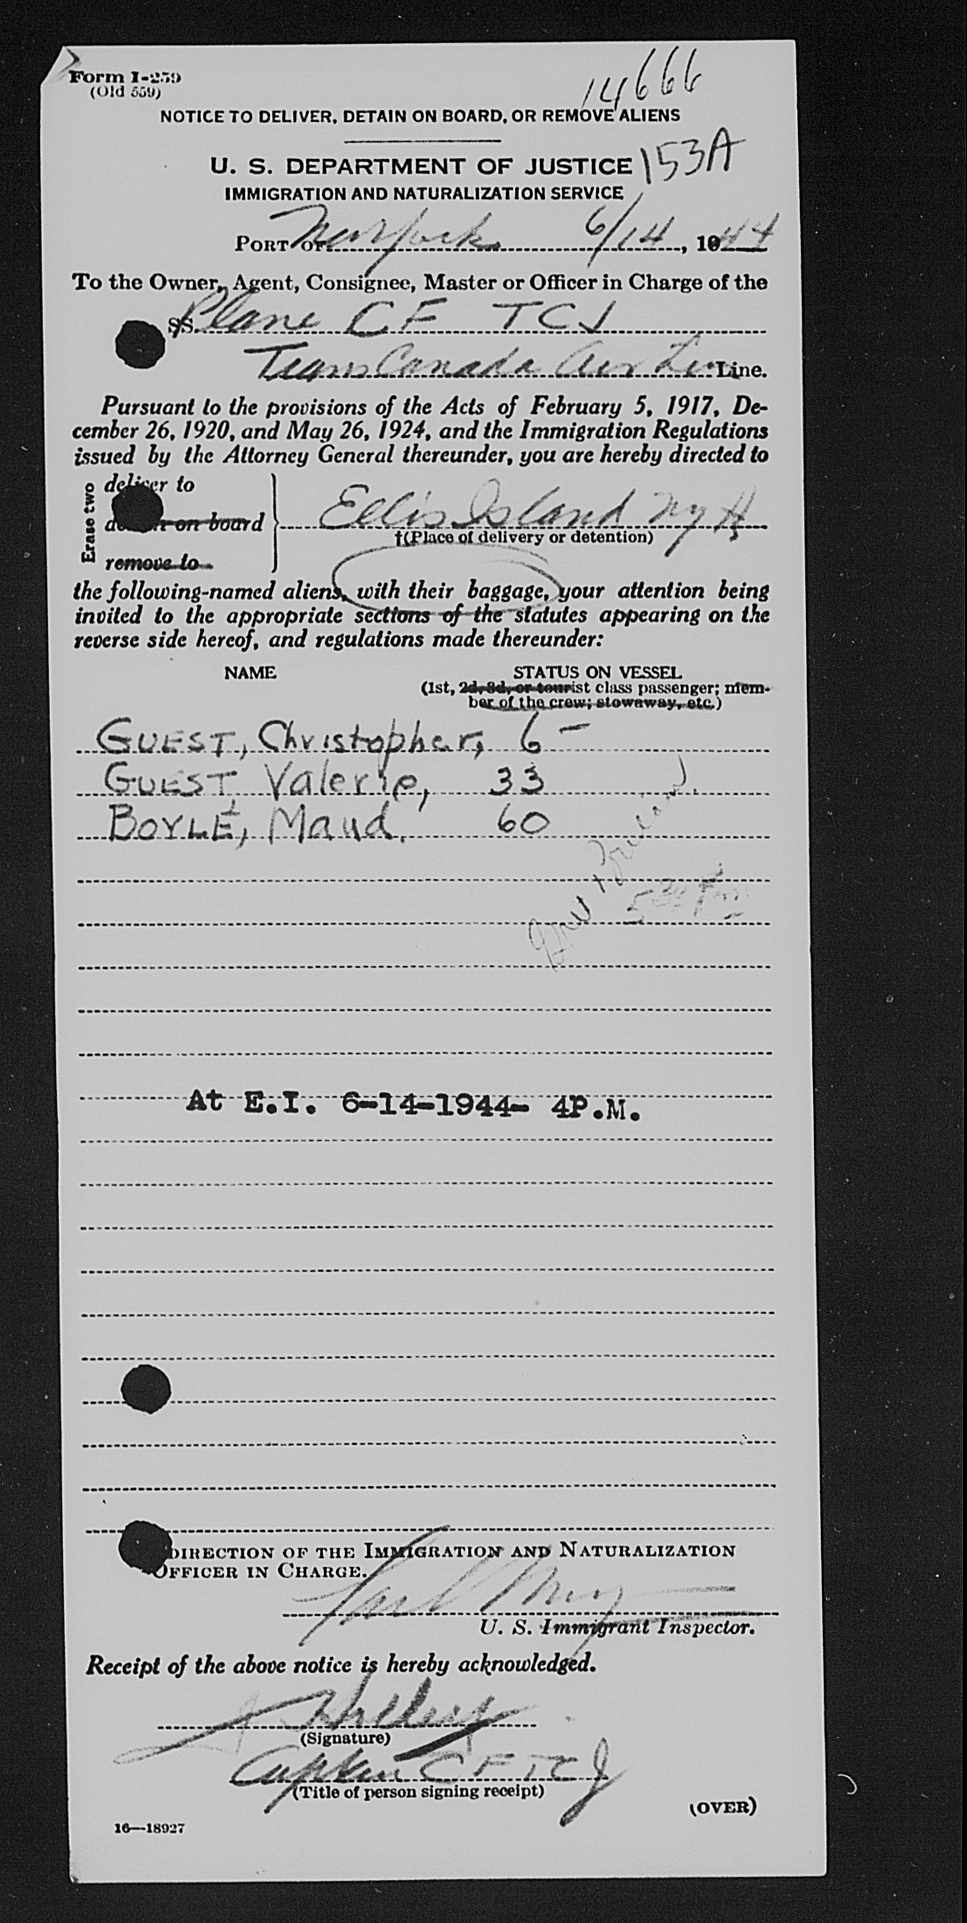 Form I-259
(Old 559)
14666
NOTICE TO DELIVER, DETAIN ON BOARD, OR REMOVE ALIENS
U. S. DEPARTMENT OF JUSTICE 153A
IMMIGRATION AND NATURALIZATION SERVICE
PORT OF New York 6/14, 1944
To the Owner, Agent, Consignee, Master or Officer in Charge of the
SS. Plane CF TCJ
Trans Canada Air Line.
Pursuant to the provisions of the Acts of February 5, 1917, De-
cember 26, 1920, and May 26, 1924, and the Immigration Regulations
issued by the Attorney General thereunder, you are hereby directed to
Erase two
deliver to
on board Ellis Island NY H
†(Place of delivery or detention)
remove to
the following-named aliens, with their baggage, your attention being
invited to the appropriate sections of the statutes appearing on the
reverse side hereof, and regulations made thereunder:
NAME STATUS ON VESSEL
(1st, 2d, 3d, or tourist class passenger; mem-
ber of the crew; stowaway, etc.)
GUEST, Christopher, 6 -
GUEST Valerie, 33
BOYLE, Maud. 60
At E.I. 6-14-1944- 4P.M.
DIRECTION OF THE IMMIGRATION AND NATURALIZATION
OFFICER IN CHARGE.
U. S. Immigrant Inspector.
Receipt of the above notice is hereby acknowledged.
(Signature)
Captain CF TCJ
(Title of person signing receipt)
(OVER)
16—18927